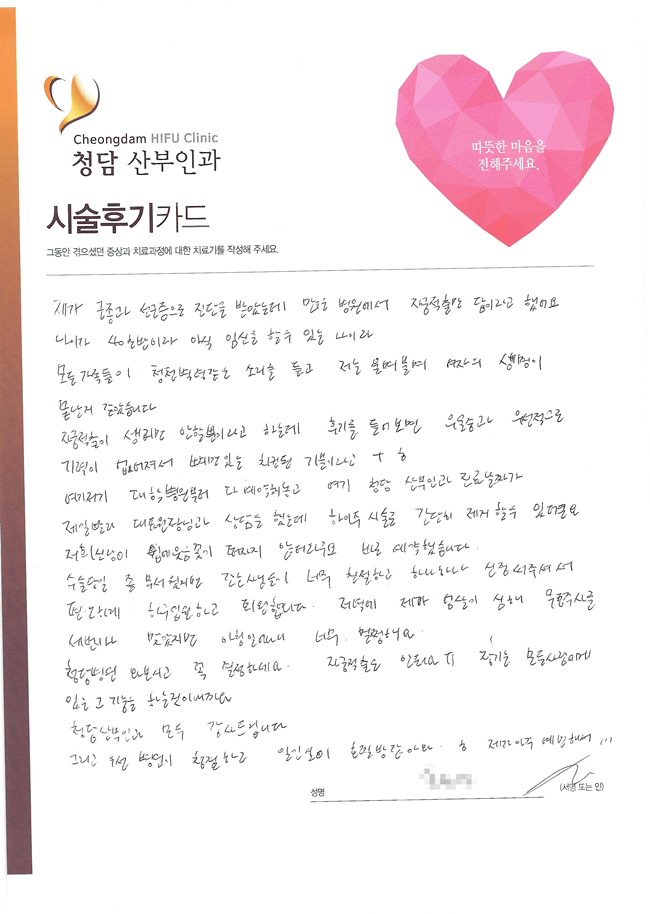 Cheongdam HIFU Clinic
청담 산부인과
따뜻한 마음을
전해주세요.
시술후기카드
그동안 겪으셨던 증상과 치료과정에 대한 치료기를 작성해 주세요.
제가 근종과 선근증으로 진단을 받았는데 병원에서 자궁적출만 답이라고 했어요
나이가 40초반이라 아직 임신을 할수 있는 나이라
모든가족들이 청천벽력같은 소리를 듣고 저는 울며불며 여자의 생명이
끝난게 같았습니다
자궁적출이 생리만 안할뿐이라고 하는데 후기를 들어보면 우울증과 우선적으로
기력이 없어져서 기분이라고
여기저기 대학병원부터 다 예약해놓고 여기 청담 산부인과 진료날짜가
제일빨라 대표원장님과 상담을 했는데 하이푸 시술로 간단히 제거할수 있다면요
저희신랑이 입에웃음꽃이 떠나지 않더라구요 바로 예약했습니다.
수술당일 좀 무서웠지만 간호사생님들이 너무 친절하고 하나하나 신경써주셔서
편하게 하루입원하고 퇴원합니다. 저녁에 제가 엄살이 심해 무통주사를
세번이나 맞았지만 아침일어나니 너무 멀쩡해요.
청담병원 와보시고 꼭 결정하세요. 자궁적출은 안돼요 TT 장기는 모든사람에게
있는 그 기능을 하는것이니까요
청담산부인과 모두 감사드립니다
그리고 병원이 청결하고 입원실이 호텔방같아요.
성명
(서명 또는 인)